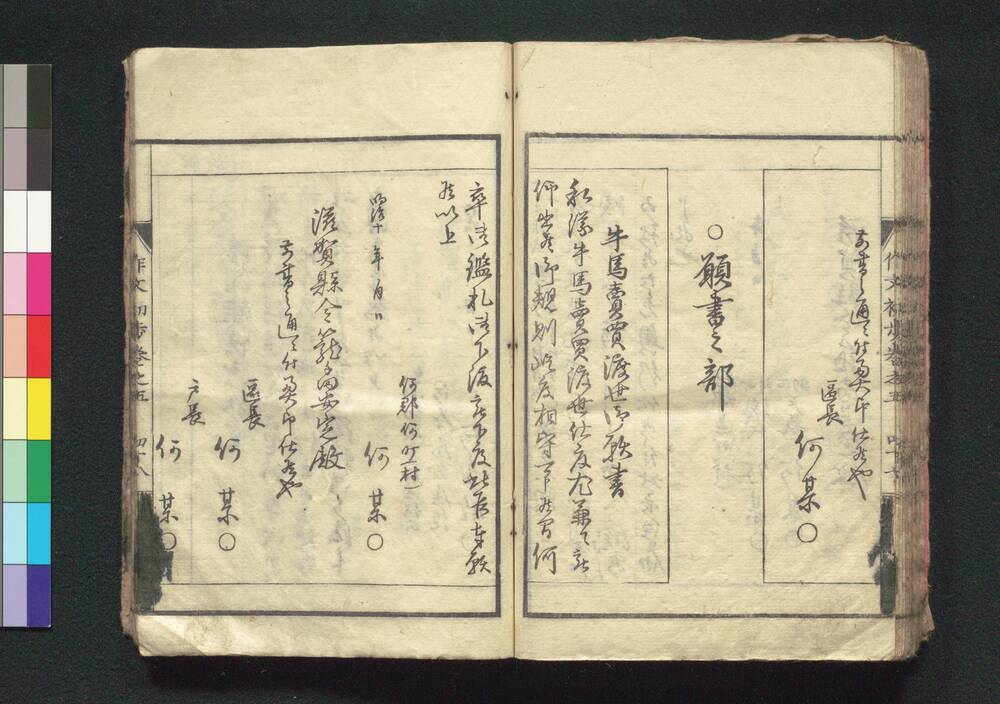 前書之通ニ付奥印仕候也
區長
何某〇
〇願書之部
牛馬賣買渡世御願書
私儀牛馬賣買渡世仕度尤兼テ被
仰出候御規則総度相守可申候間何
卒御鑑札御下渡被下度此段奉願
候以上
何郡何町(村)
明治十年月日
何某〇
滋賀縣令籠手田安定殿
前書之通ニ付奥印仕候也
區長
何某〇
戸長
何某〇
作文初歩巻之五
四十八